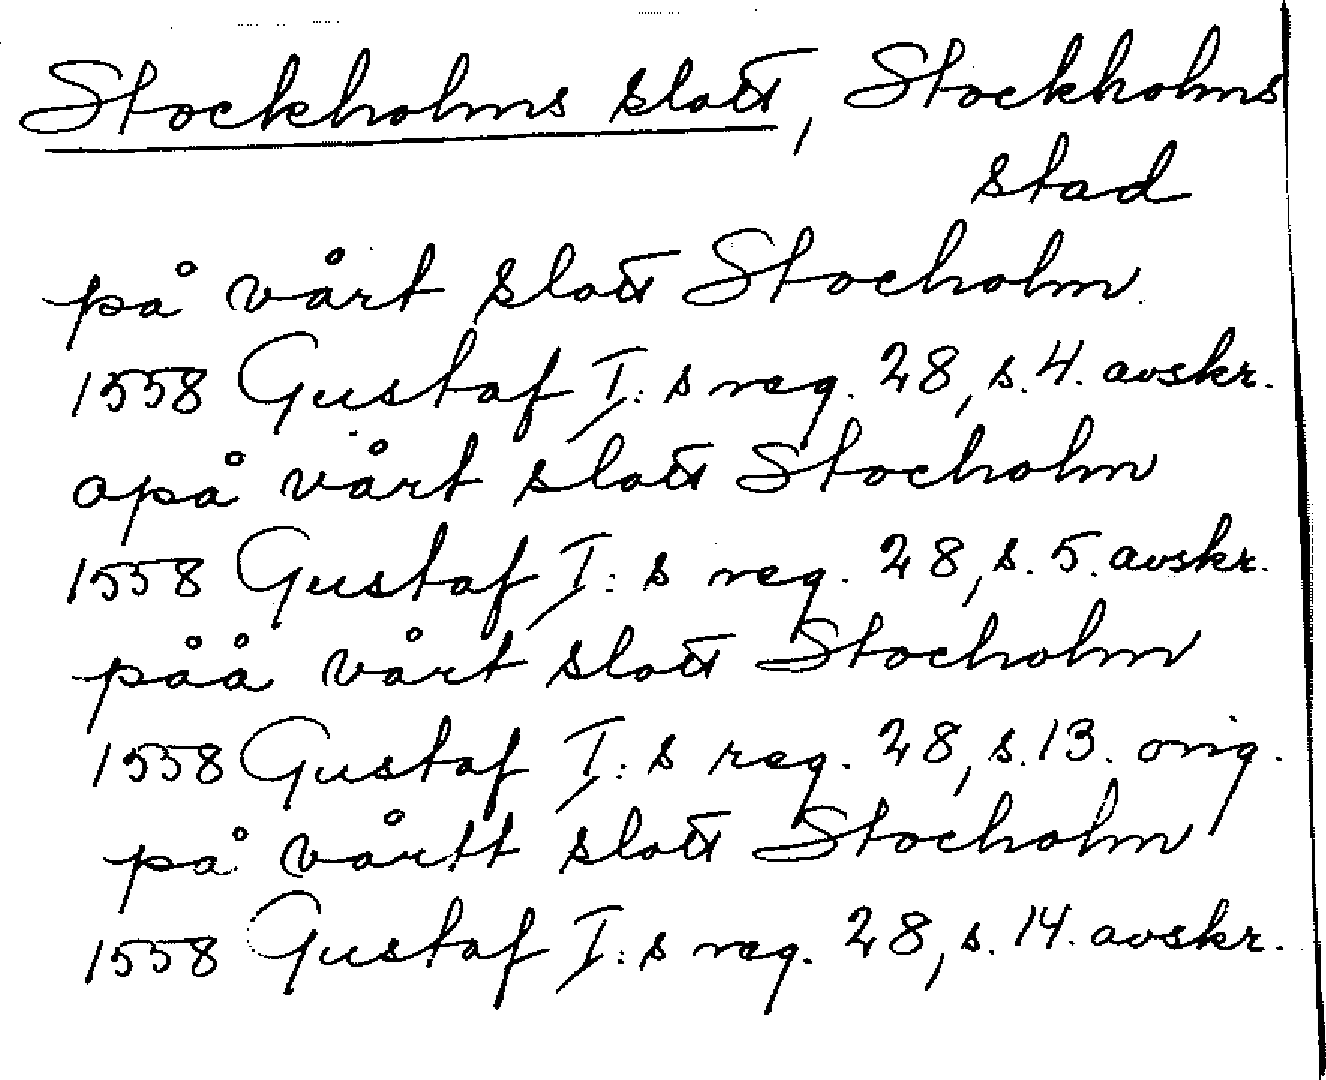 Stockholms slott, Stockholms
stad
på vårt slott Stocholm
1558 Gustaf I:s reg. 28, s. 4. avskr.
opå vårt slott Stocholm
1558 Gustaf I:s reg. 28, s. 5. avskr.
påå vårt slott Stocholm
1558 Gustaf I:s reg. 28, s. 13. orig.
på vårtt slott Stocholm
1558 Gustaf I:s reg. 28, s. 14. avskr.